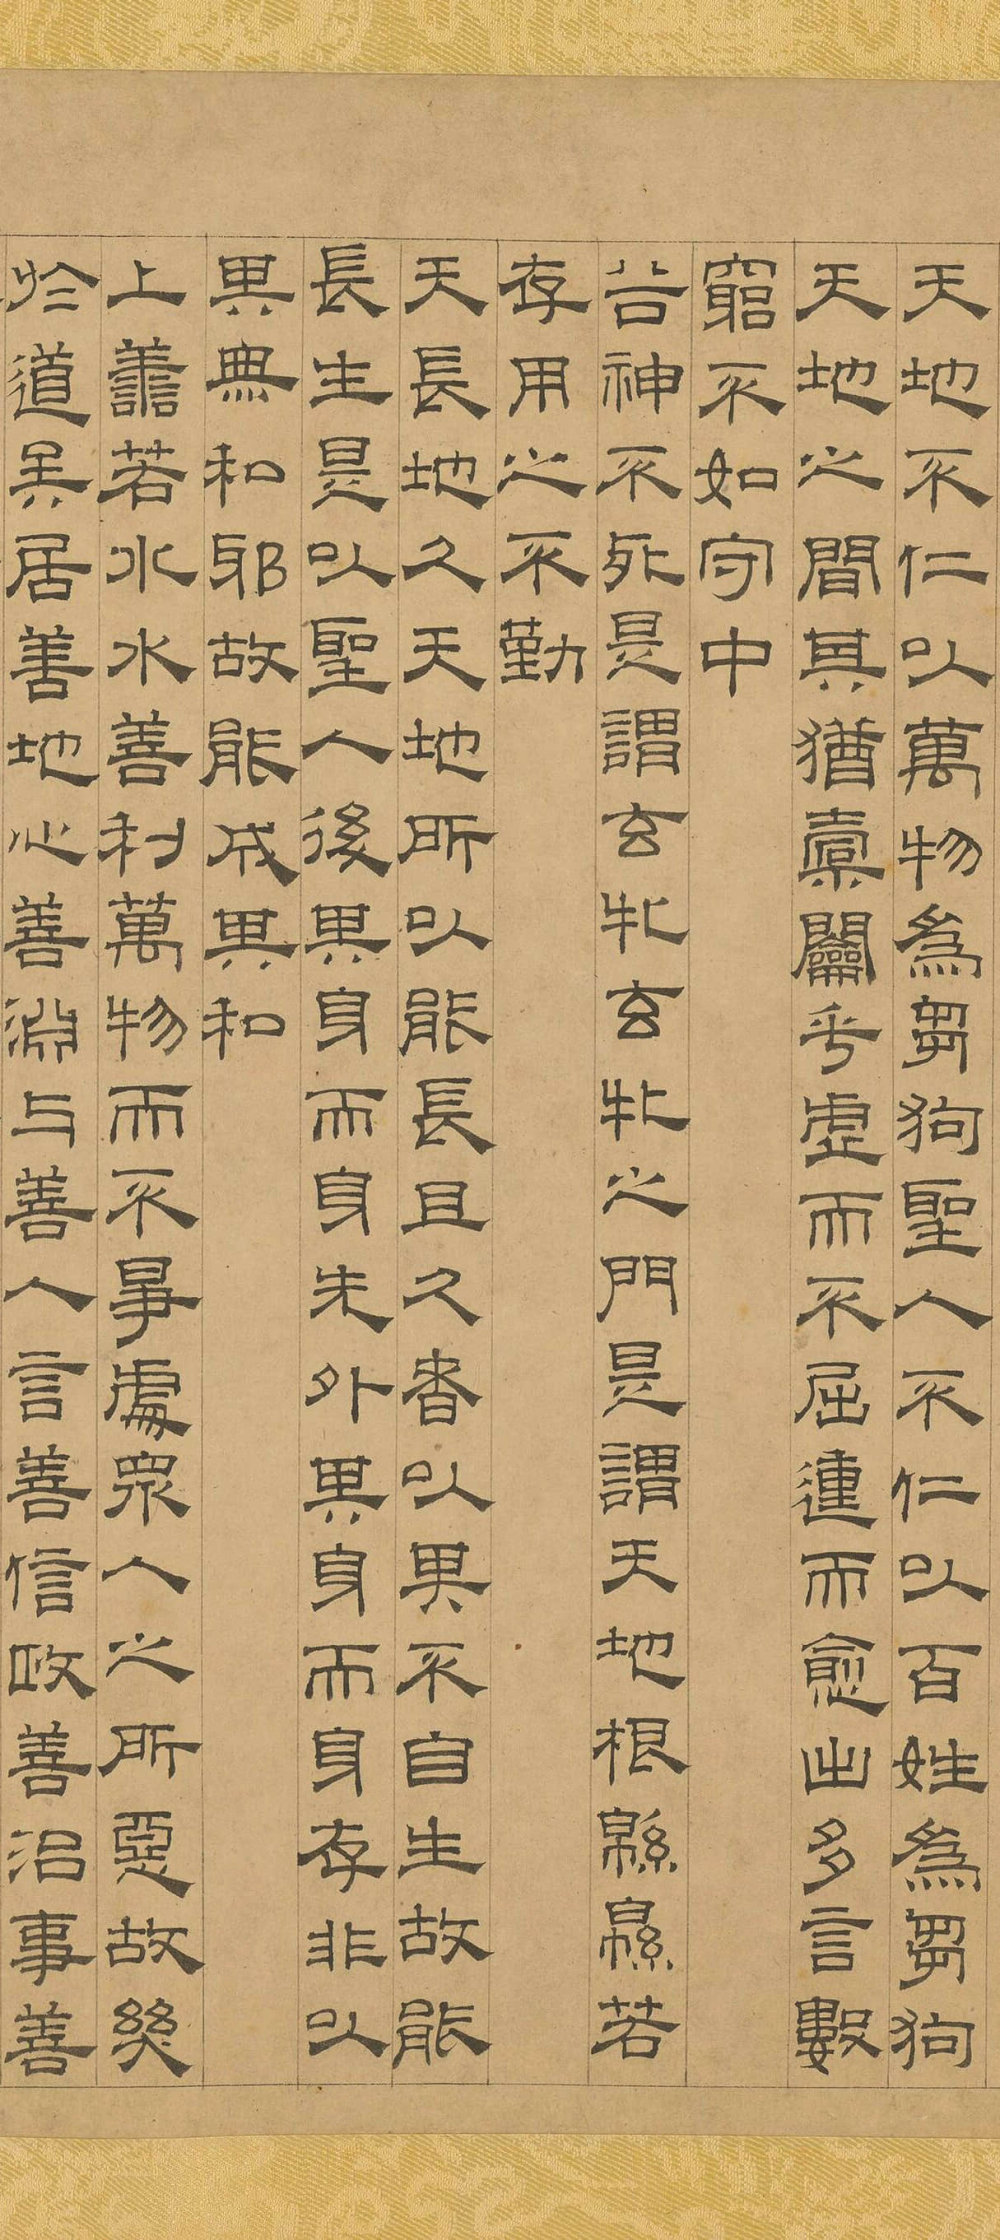 天地不仁以萬物爲芻狗聖人不仁以百姓爲芻狗
天地之間其猶橐𨷲乎虛而不屈𨔝而愈出多言數
窮不如守中
谷神不死是謂玄牝玄牝之門是謂天地根緜緜若
存用之不勤
天長地久天地所以能長且久者以其不自生故能
長生是以聖人後其身而身先外其身而身存非以
其無私邪故能成其私
上善若水水善利萬物而不爭處衆人之所惡故幾
於道矣居善地心善淵与善人言善信政善治事善